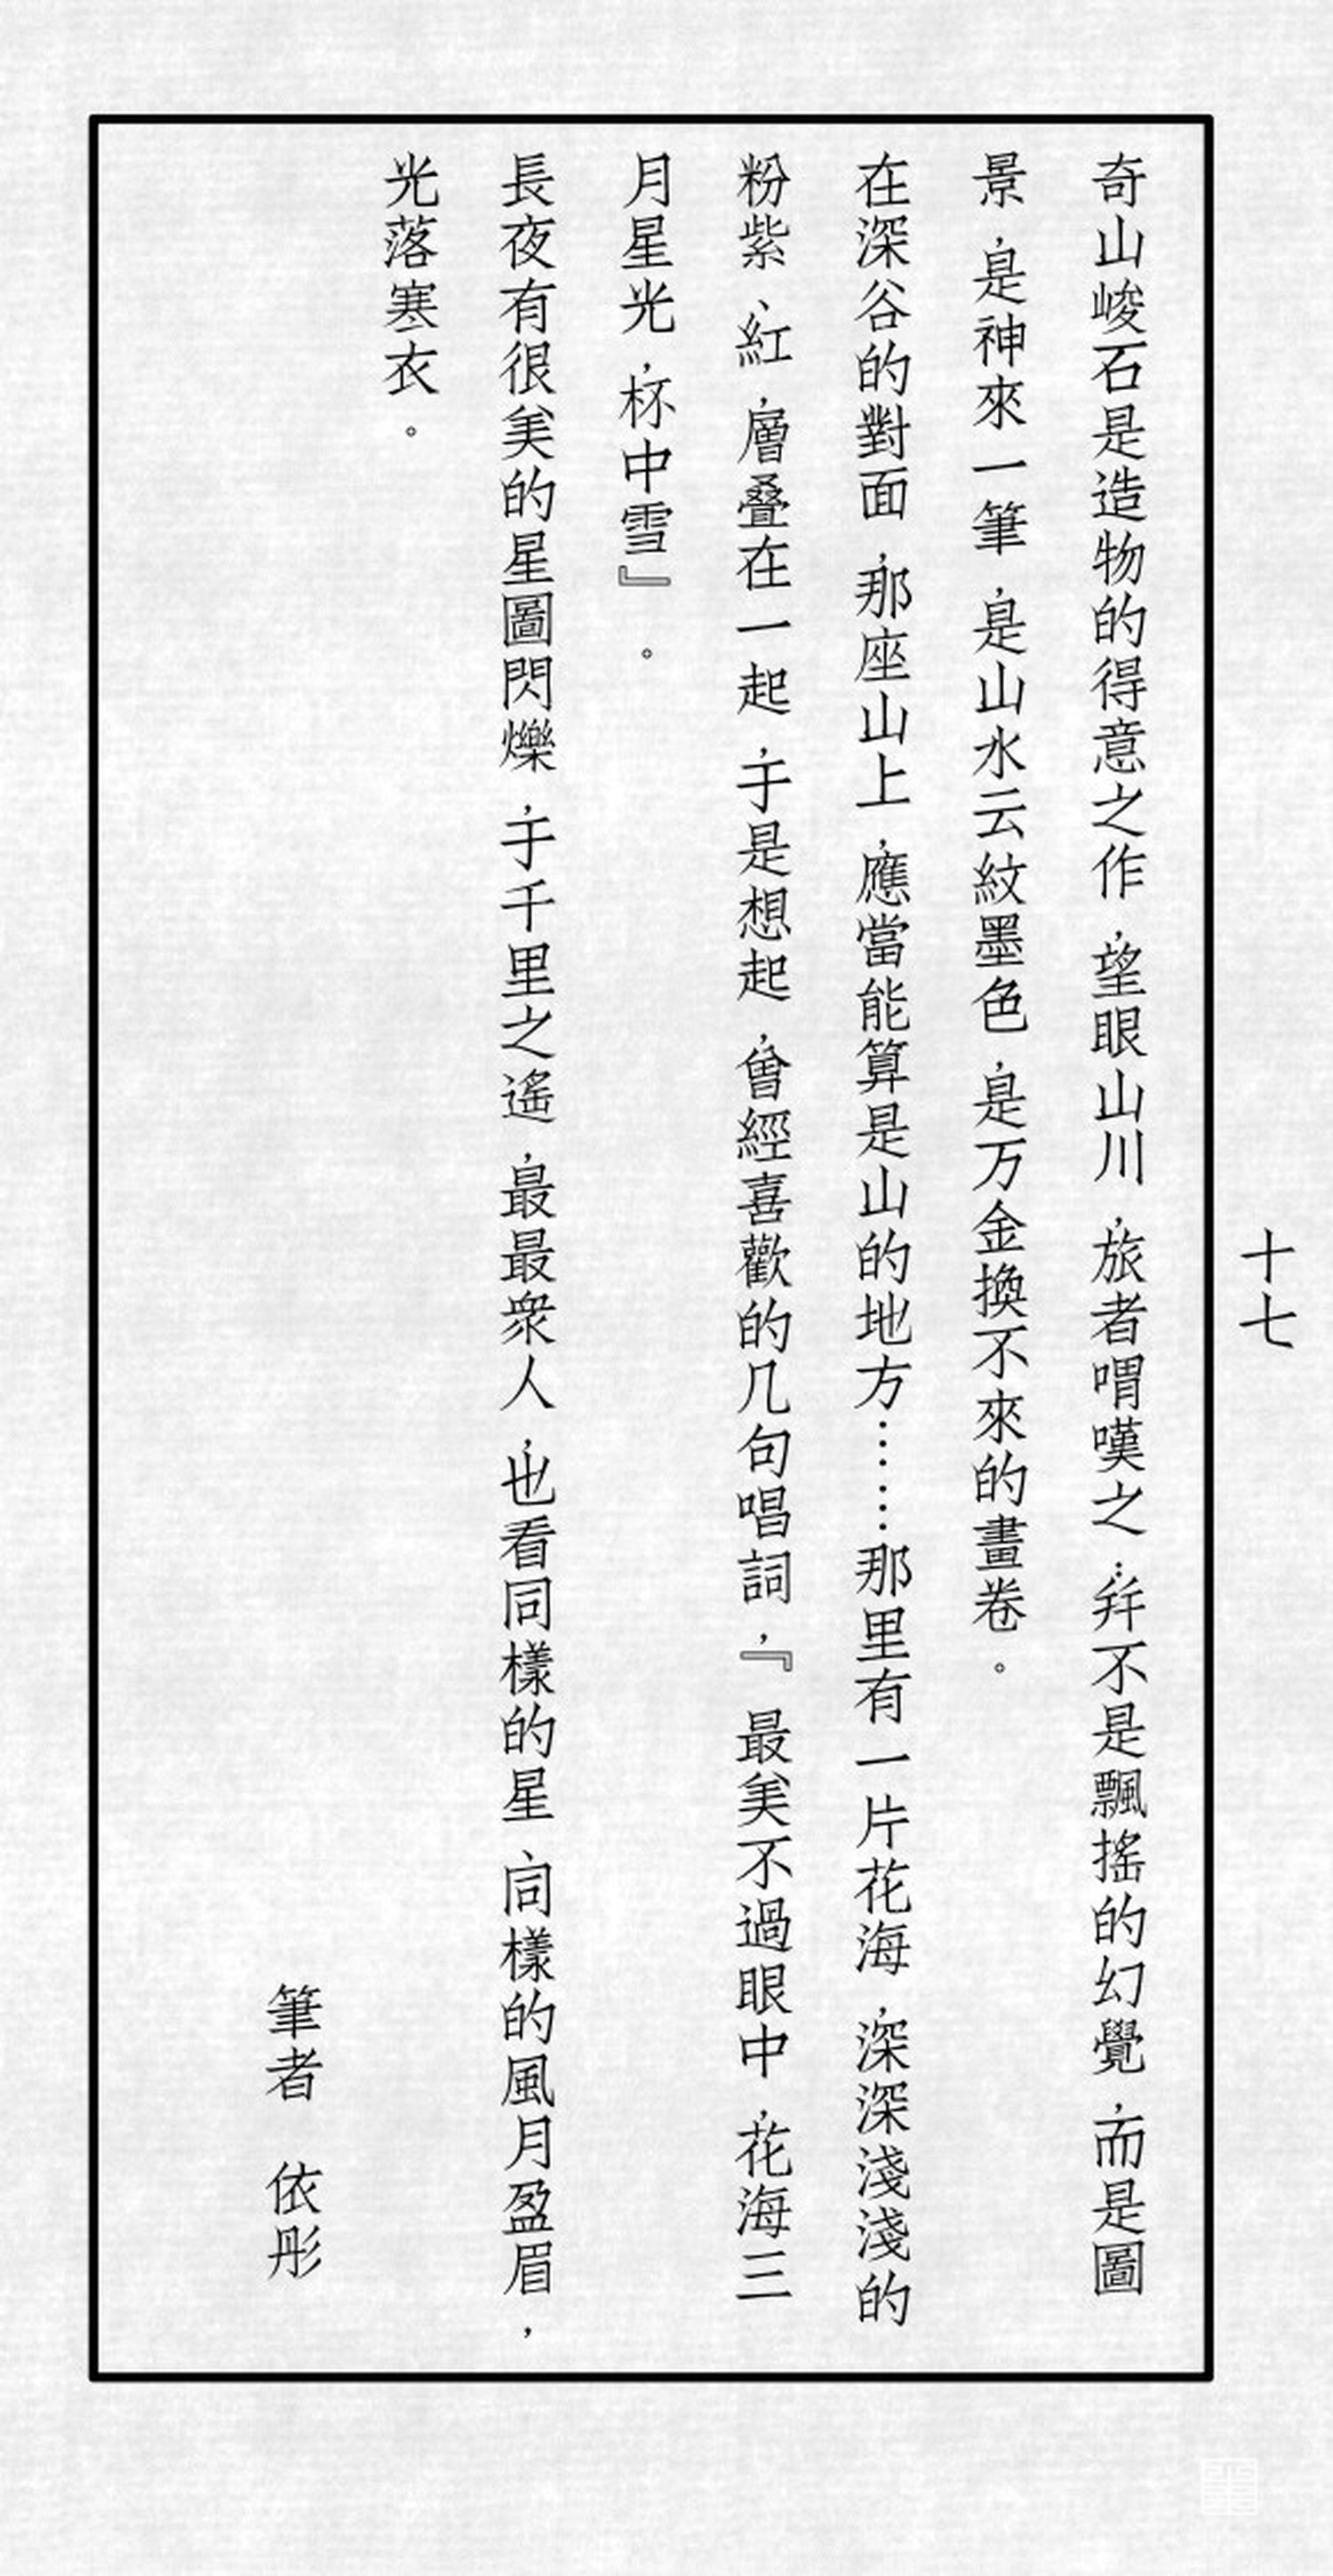 十七
奇山峻石是造物的得意之作，望眼山川，旅者喟嘆之：幷不是飄搖的幻覺，而是圖
景，是神來一筆，是山水云紋墨色，是万金換不來的畫卷。
在深谷的對面，那座山上，應當能算是山的地方……那里有一片花海，深深淺淺的
粉紫、紅，層叠在一起，于是想起，曾經喜歡的几句唱詞，『最美不過眼中，花海三
月星光，杯中雪』。
長夜有很美的星圖閃爍，于千里之遙，最最衆人，也看同樣的星，同樣的風月盈眉，
光落寒衣。
筆者　依彤